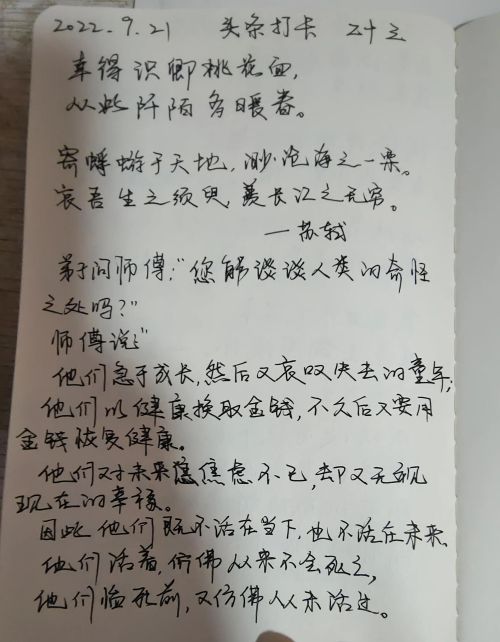 2022.9.21 头条打卡 21于之
幸得识卿桃花面,
从此阡陌多暖春。
寄蜉蝣于天地,渺沧海之一粟。
哀吾生之须臾,羡长江之无穷。
—苏轼
弟子问师傅:“您能谈谈人类的奇怪
之处吗?”
师傅说:“
他们急于成长,然后又哀叹失去的童年;
他们以健康换取金钱,不久后又要用
金钱恢复健康。
他们又对未来焦虑不已,却又无视
现在的幸福。
因此他们既不活在当下,也不活在未来.
他们活着,仿佛从来不会死亡,
他们临死前,又仿佛从未活过。